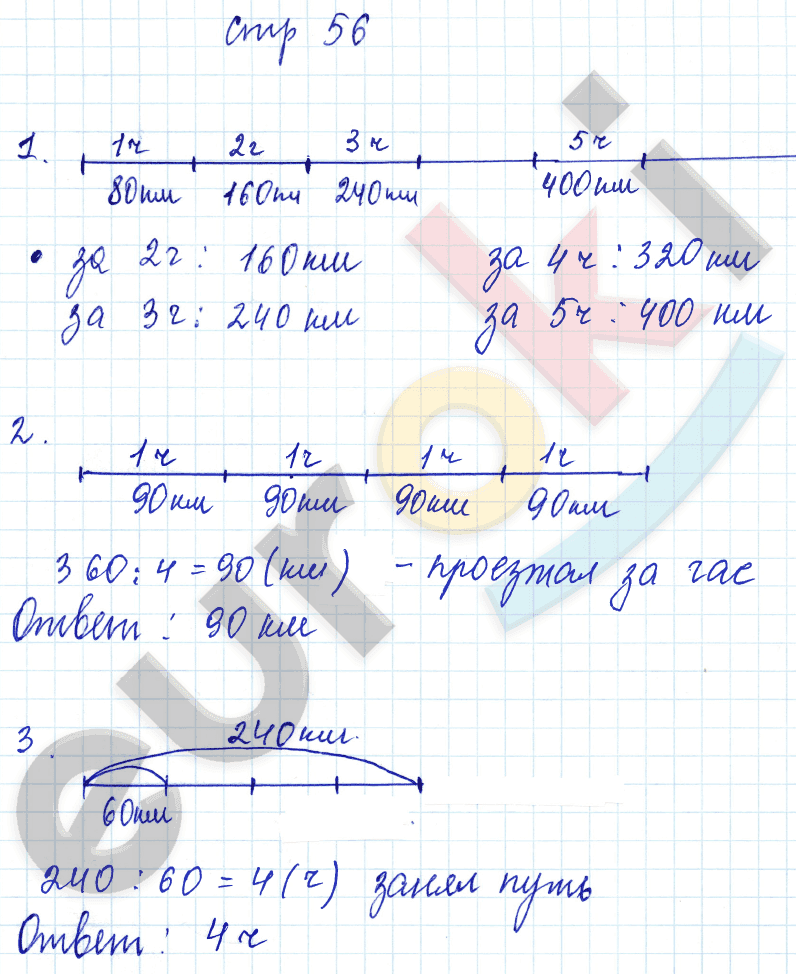 стр 56
1. 1ч 2ч 3ч 5ч
80км 160км 240км 400км
• за 2ч: 160км за 4ч: 320км
за 3ч: 240 км за 5ч: 400 км
2.
1ч 1ч 1ч 1ч
90км 90км 90км 90км
360:4=90(км) - проезжал за час
Ответ: 90 км
3. 240км.
60км
240:60=4(ч) занял путь
Ответ: 4ч
euroki